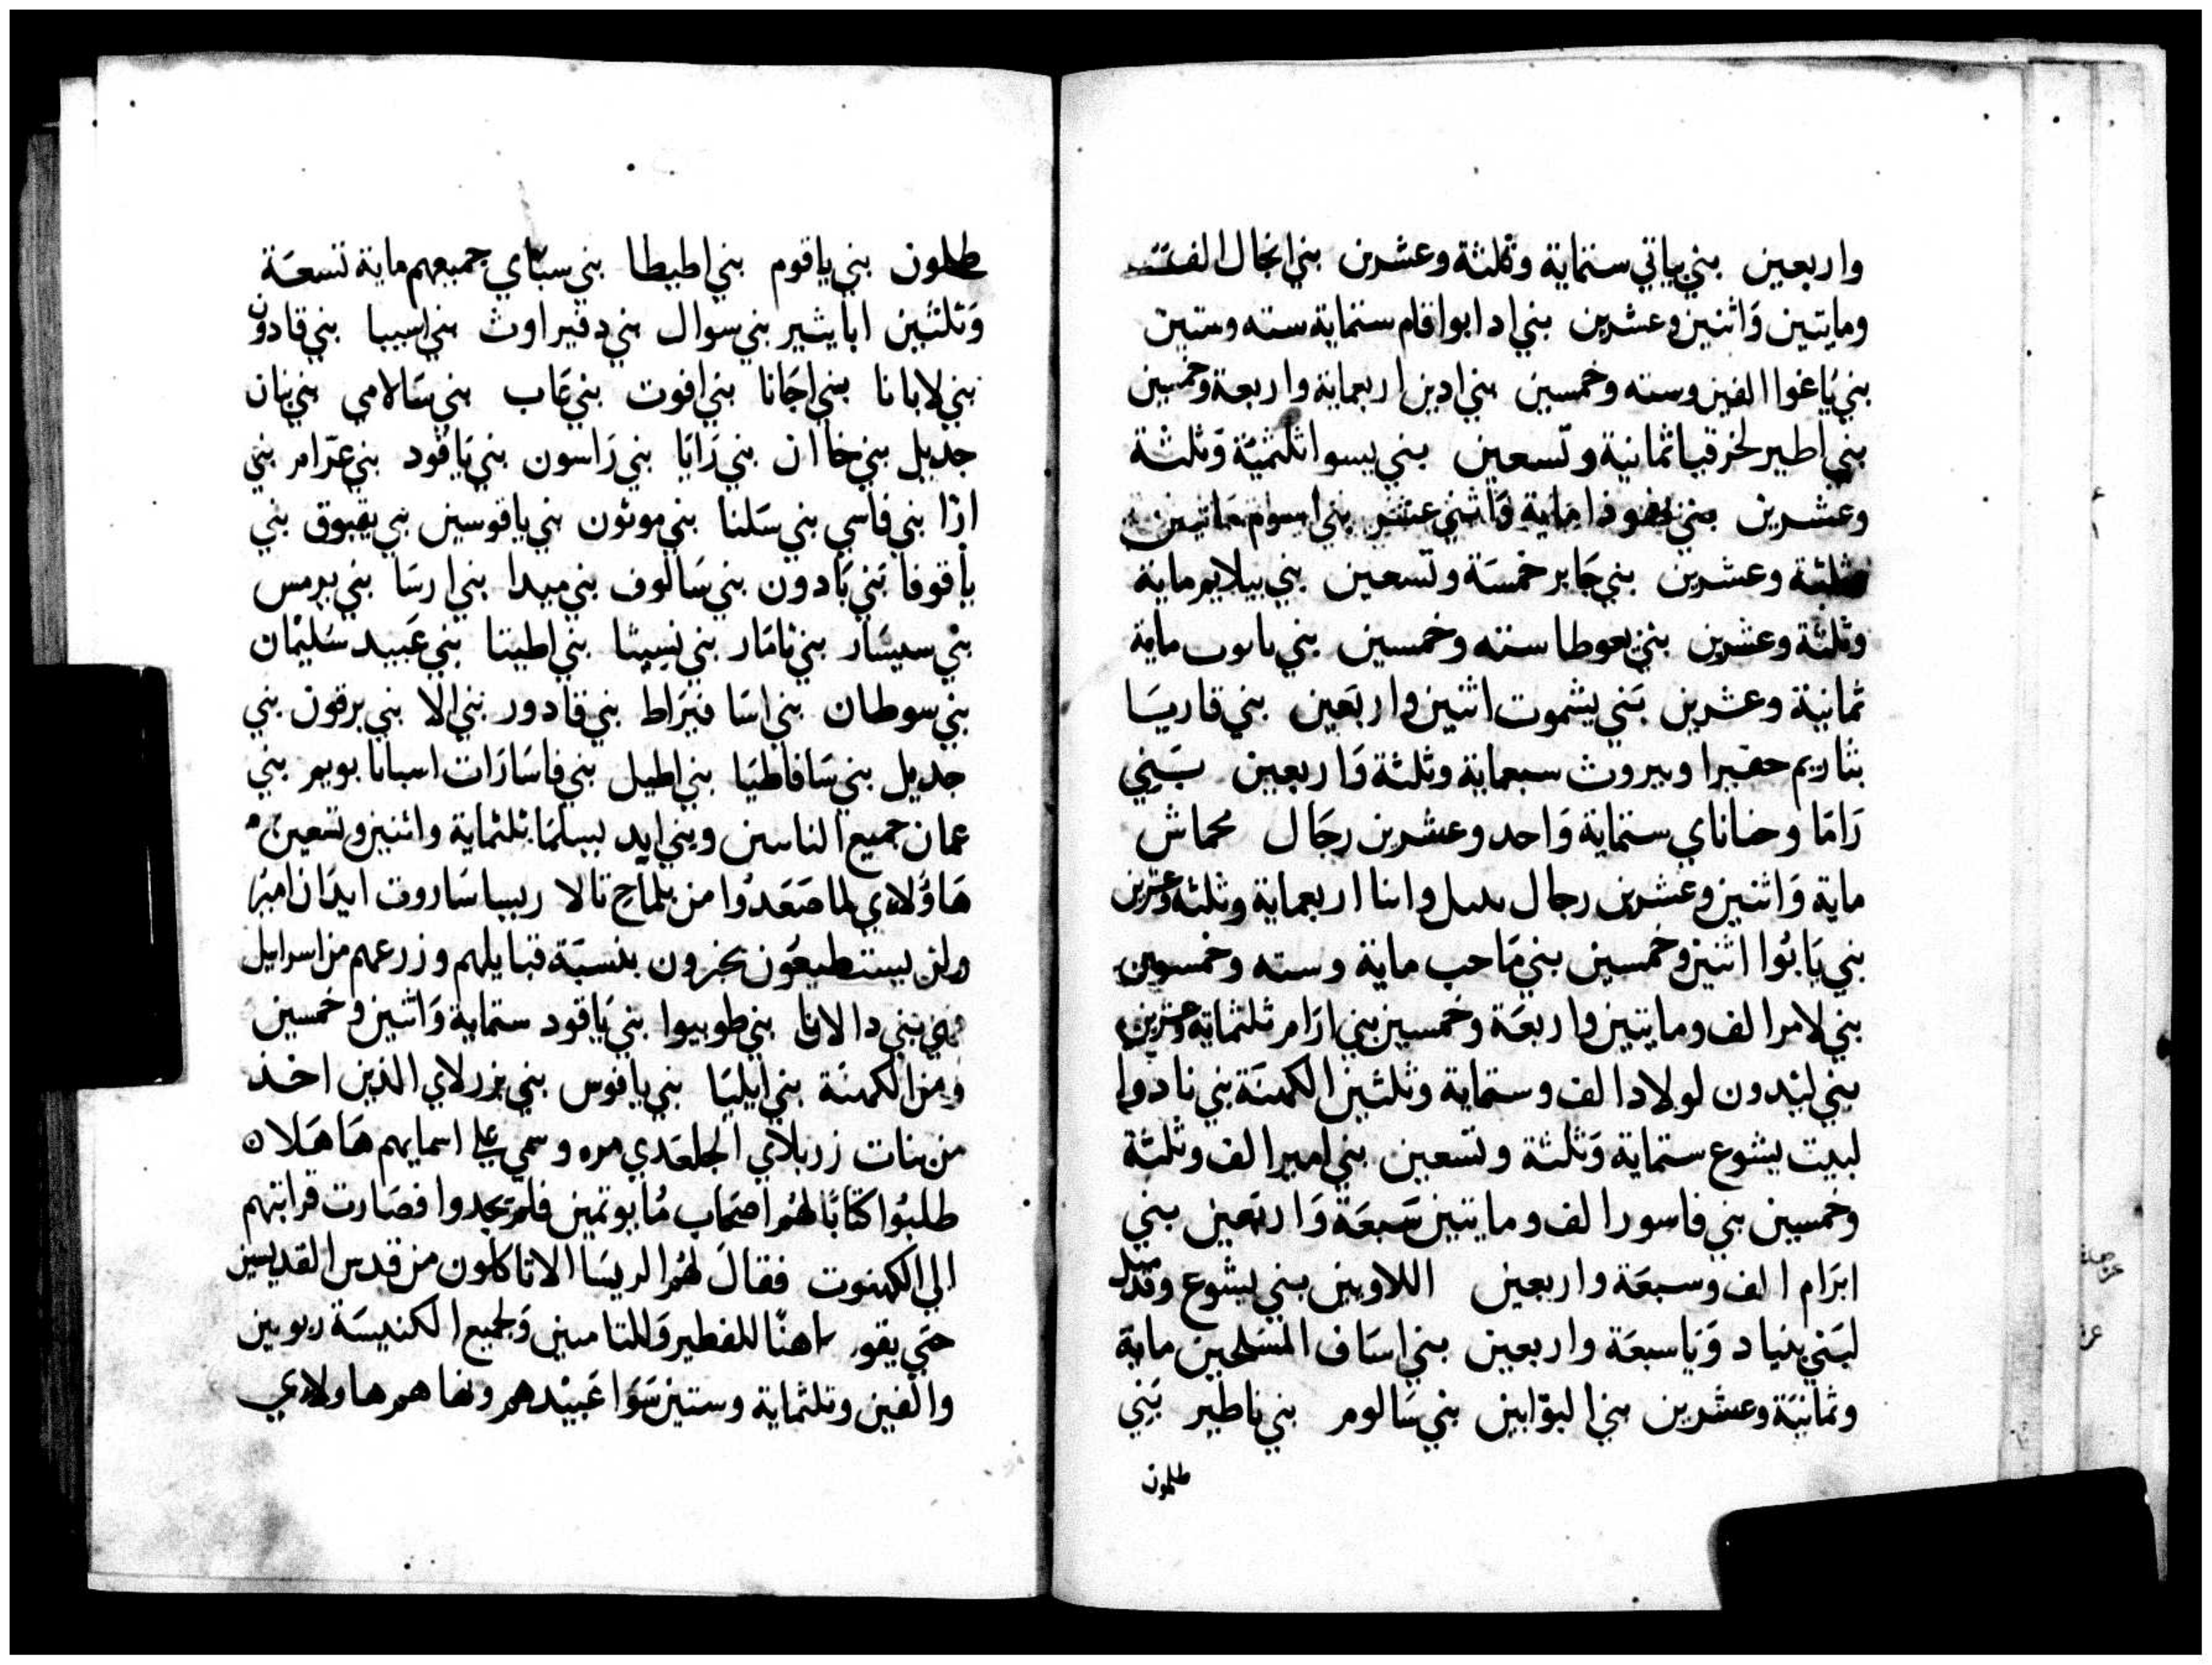 واربعين بني ياتي ستماية وثلثة وعشرين بني انجال الف
ومايتين وَاثنين وعشرين بني ادابواقام ستماية سته وستين
بني يَاغوا الفين وسته وخمسين بني ادين اربعماية واربعة وخمسين
بني اطير لحزقيا ثمانية وتسعين بني بيسوا ثلثميّة وَثلثة
وعشرين بني ماية وَاثني عشر بني
ثلثة وعشرين بني جَابر خمسَة وتسعين بني بيلايم ماية
وثلثة وعشرين بني سته وخمسين بني ماية
ثمانية وعشرين بَني يشموت اثنين واربَعين بني قاريسَا
بثاريم حفيرا وبيروث سبعماية وثلثة وَاربعين بَنِي
رَامَا وحناناي ستماية وَاحد وعشرين رجَال محماش
ماية وَاثنين وعشرين رجال اربعماية وثلثة وعشرين
بني يَابُوا اثنين وخمسين بني مَاحب ماية وسته وخمسين
بني لامر الف ومايتين واربعَة وخمسين بني ارَام ثلثماية وعشرين
بني ليْدون لولادا الف وستماية وثلثين الكهنَة بني نادوا
لبيت يشوع ستماية وَثلثة وتسعين بني امير الف وثلثة
وخمسين بني فاسور الف ومايتين سَبعَة وَاربَعين بني
ابَرام الف وسبعَة واربعين اللاويين بني يشوع
لبَني بنياد وَيَا سبعَة واربعين بني اسَاف المسَبحين ماية
وثمانيَة وعشرين بني البوّابين بني سَالوم بني ناطير بَني
طلمون
طلمون بني ياقوم بني اطيطا بني سبَاي جميعهم ماية تسعَة
وَثلثين ابايثير بني سوال بني دقيراوث بني اسيبا بني قادون
بني لابانا بني اجَانا بني افوت بني عَاب بني سَالامي بني نان
جديل بني خاان بني رَايَا بني رَاسون بني يَاقود بني عزّام بني
ازا بني فاسي بني سَلنا بني موثون بني ياقوسين بني يقبوق بني
ياقوفا بَني يَادون بني سَالوف بني ميدا بني ارسَا بني برمس
بني سيسَار بني ثامَار بني نسيثا بني اطيتا بني عَبيد سَليمَان
بني سوطان بني اسَا فيَراط بني قادور بني الا بني برقون بني
جديل بني سَافاطيَا بني اطيل بني فاسَارَات اسبانا بويم بني
عمان جميع الناسين وبني ايد بيسلمَا ثلثماية واثنين وتسعين
هَاوْلاي لما صَعَدوُا من بلماح تالا ريبيا سَاروت ايدَان
ولن يستطيعُون يخبرون بنسبَة قبايلهم وزرعهم من اسرايل
بني دالايا بني طوبيوا بني يَاقود ستماية وَاثنين وخمسين
ومن الكهنَة بني ايليَا بني يافوس بني بزرلاي الذين اخذ
من بنات زربلاي الجلعَدي مره وسمي علي اسمايهم هَاهَلان
طلبُوا كتابًا لهُم فلم يجدوا فصَارت قرابتهم
الي الكهنوت فقالَ لهُم الريسَا الا تاكلون من قدس القديسين
حتي يقوم كاهنًا للفطير وَللتامين وَلجميع الكنيسَة ربوين
والفين وثلثماية وستين سَوَا عَبيْدهم ها ولاي